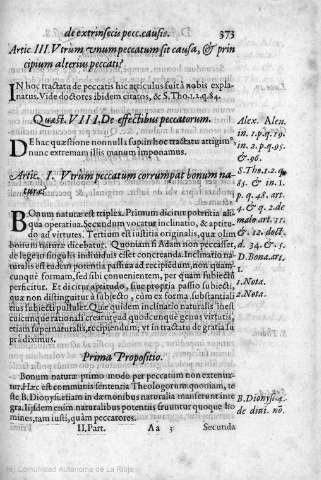 de extrinsecis pecc. causis. 373
Artic. III. Vtrum vnum peccatum sit causa, & prin
cipium alterius peccati?
IN hoc tractatu de peccatis hic articulus fuit à nobis expla
natus. Vide doctores ibidem citatos, & S. Tho. 1. 2. q. 84.
Quæst. VIII. De effectibus peccatorum.
DE hac quæstione nonnulla supra in hoc tractatu attigim9,
nunc extremam illis manum imponamus.
Artic. I. Vtrum peccatum corrumpat bonum na-
turæ?
BOnum naturæ est triplex. Primum dicitur potentia ali-
qua operatiua. Secundum vocatur inclinatio, & aptitu-
do ad virtutes. Tertium est iustitia originalis, quæ olim
bonum naturæ dicebatur. Quoniam si Adam non peccasset,
de lege in singulis indiuiduis esset concreanda. Inclinatio na-
turalis est eadem potentia passiua ad recipiendum, non quam-
cunque formam, sed sibi conuenientem, per quam subiectū
perficitur. Et dicitur aptitudo, siue propria passio subiecti,
quæ non distinguitur à subiecto, cùm ex forma substantiali
eius subiecti pullulet. Quæ quidem inclinatio naturalis inest
cuicunque rationali creaturæ ad quodcunque genus virtutis,
etiam supernaturalis, recipiendum; vt in tractatu de gratia su
prà diximus.
Prima Propositio.
Bonum naturæ primo modo per peccatum non extenua-
tur. Hæc est communis sententia Theologorum quoniam, te
ste B. Dionys. etiam in dæmonibus naturalia manserunt inte
gra. Iisdem enim naturalibus potentiis fruuntur quoque ho
mines, tam iusti, quàm peccatores.
II. Part. Aa 3 Secunda
Alex. Alen.
in. 1. p. q. 19.
in. 2. p. q. 95.
& 96.
S. Tho. 1. 2. q.
85. & in. 1.
p. q. 48. art.
4. & q. 2. de
malo art. 11.
& 12. doct.
d. 34. & 5.
D. Bona. art.
1.
1. Nota.
2. Nota.
B. Dionys. 4.
de diui. nō.
Comunidad Autónoma de La Rioja